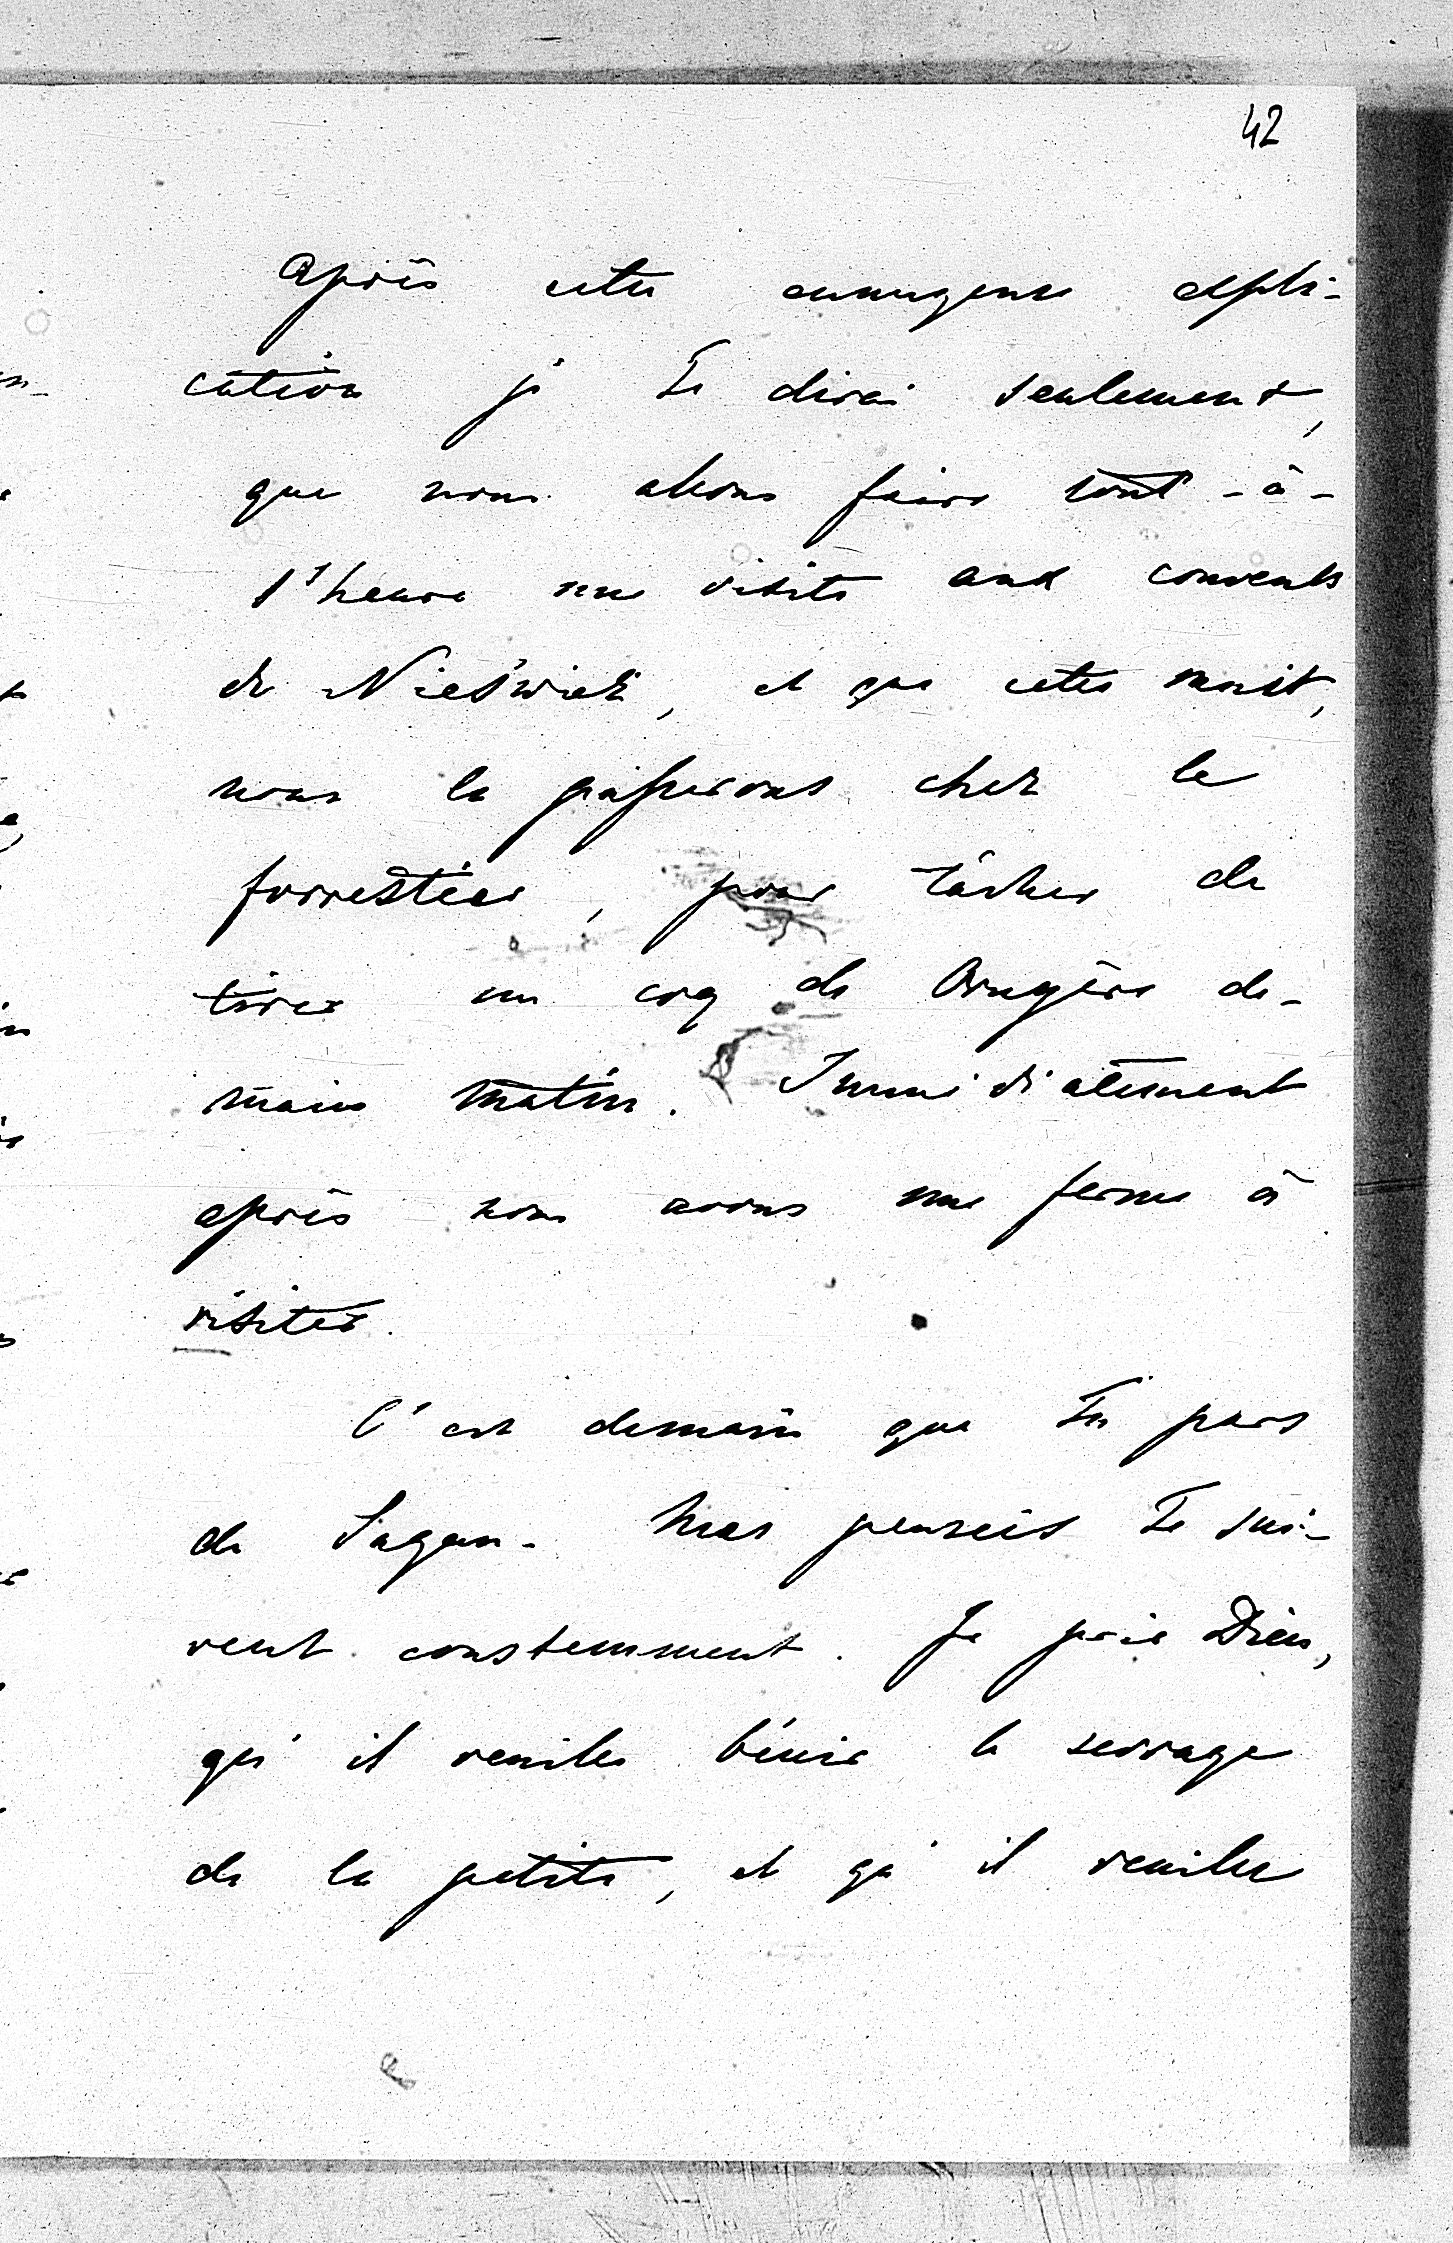 42
Après cette ennuyeuse expli-
cation je Te dirai seulement,
que nous allons faire tout-à-
l'heure une visite aux couvents
de Nieśwież, et que cette nuit,
nous la passerons chez le
forrestier, pour tâcher de
tirer un coq de bruyère de-
main matin. Immédiatement
après nous avons une ferme à
visiter.
C'est demain que Tu pars
de Sagan. Mes pensées Te sui-
vent constemment. Je prie Dieu,
qu'il veuille bénir le sevrage
de la petite, et qu'il veuille